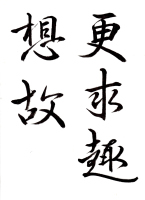 更求趣
想故